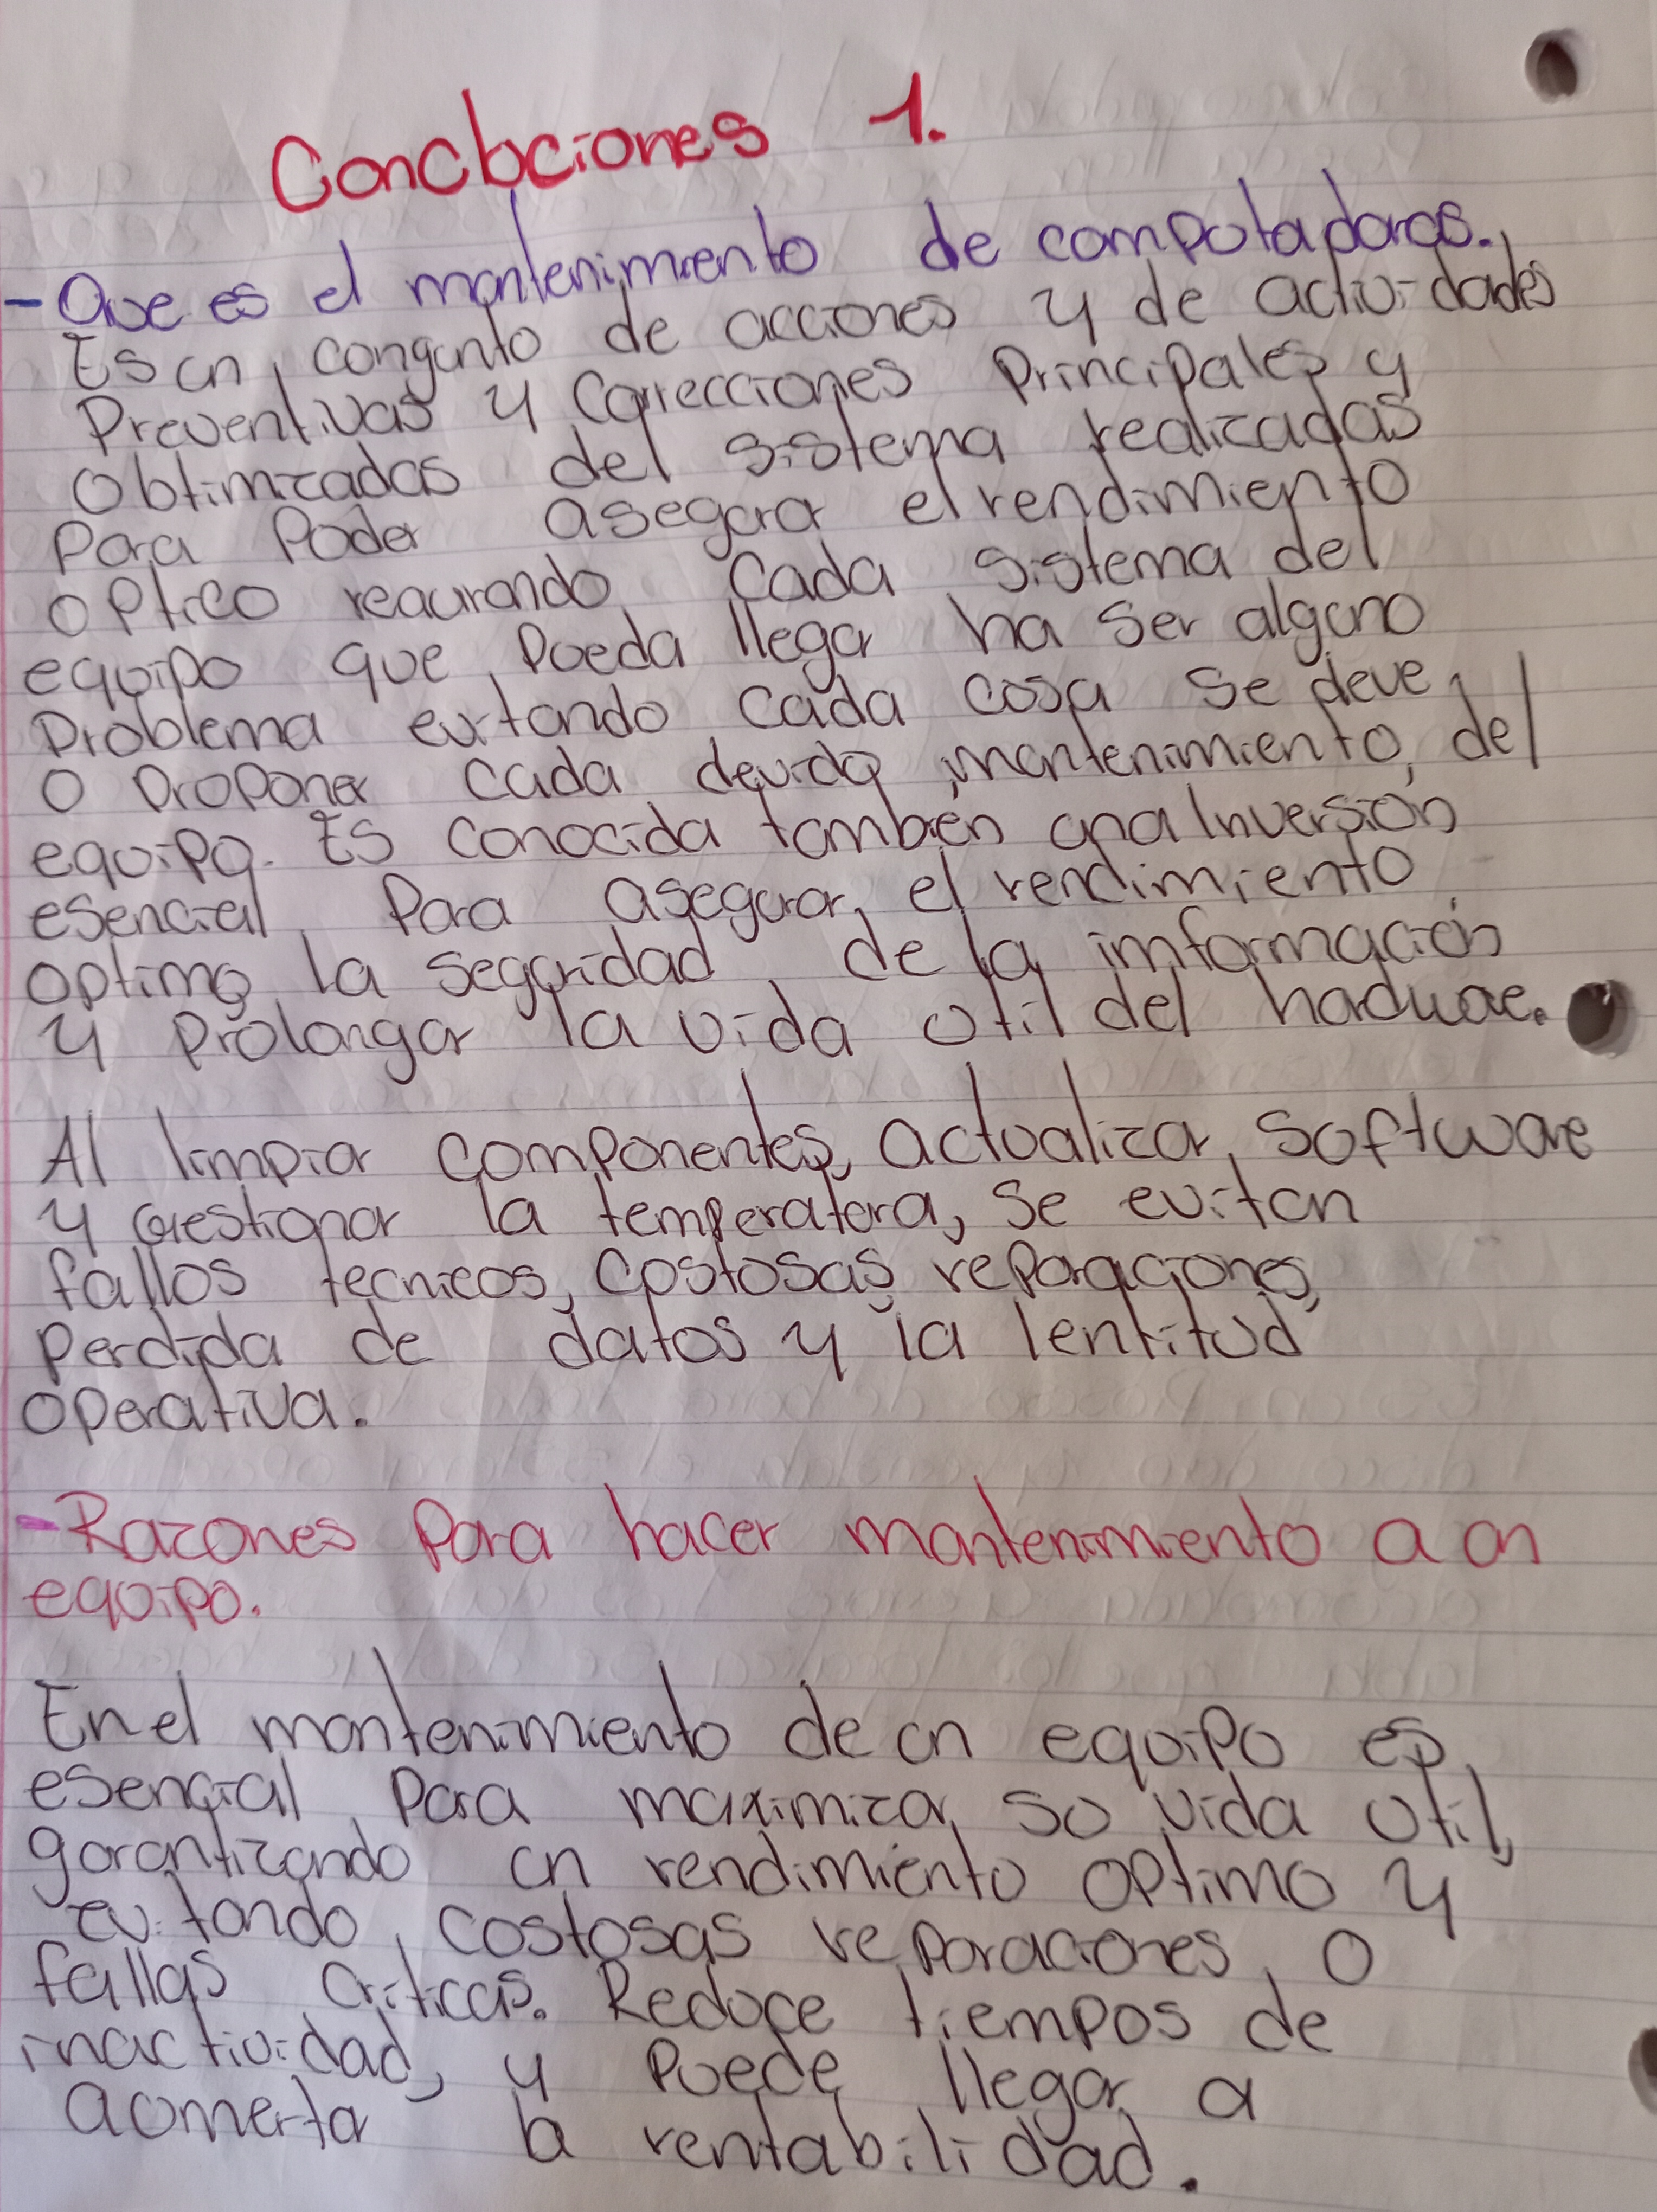 Concluciones 1.
- Que es el mantenimiento de computadoras.
Es un congunto de acciones y de actividades
Preventivas y Correcciones Principales y
obtimizadas del sistema realizadas
Para Poder asegurar el rendimiento
optico reaurando Cada sistema del
equipo que Pueda llegar ha ser alguno
Problema evitando cada cosa se deve
o Proponer cada devido mantenimiento, del
equipo. Es conocida tambien una Inversión
esencial Para asegurar el rendimiento
optimo la seguridad de la imformación
y Prolongar la vida util del hadware.
Al limpiar componentes, actualizar software
y Gestionar la temperatura, Se evitan
fallos tecnicos, costosas reparaciones,
Perdida de datos y la lentitud
operativa.
- Razones Para hacer mantenimiento a un
equipo.
En el mantenimiento de un equipo es
esencial Para maximizar su vida util,
garantizando un rendimiento optimo y
evitando costosas reparaciones o
fallas criticas. Reduce tiempos de
inactividad, y Puede llegar a
aumerta la rentabilidad.